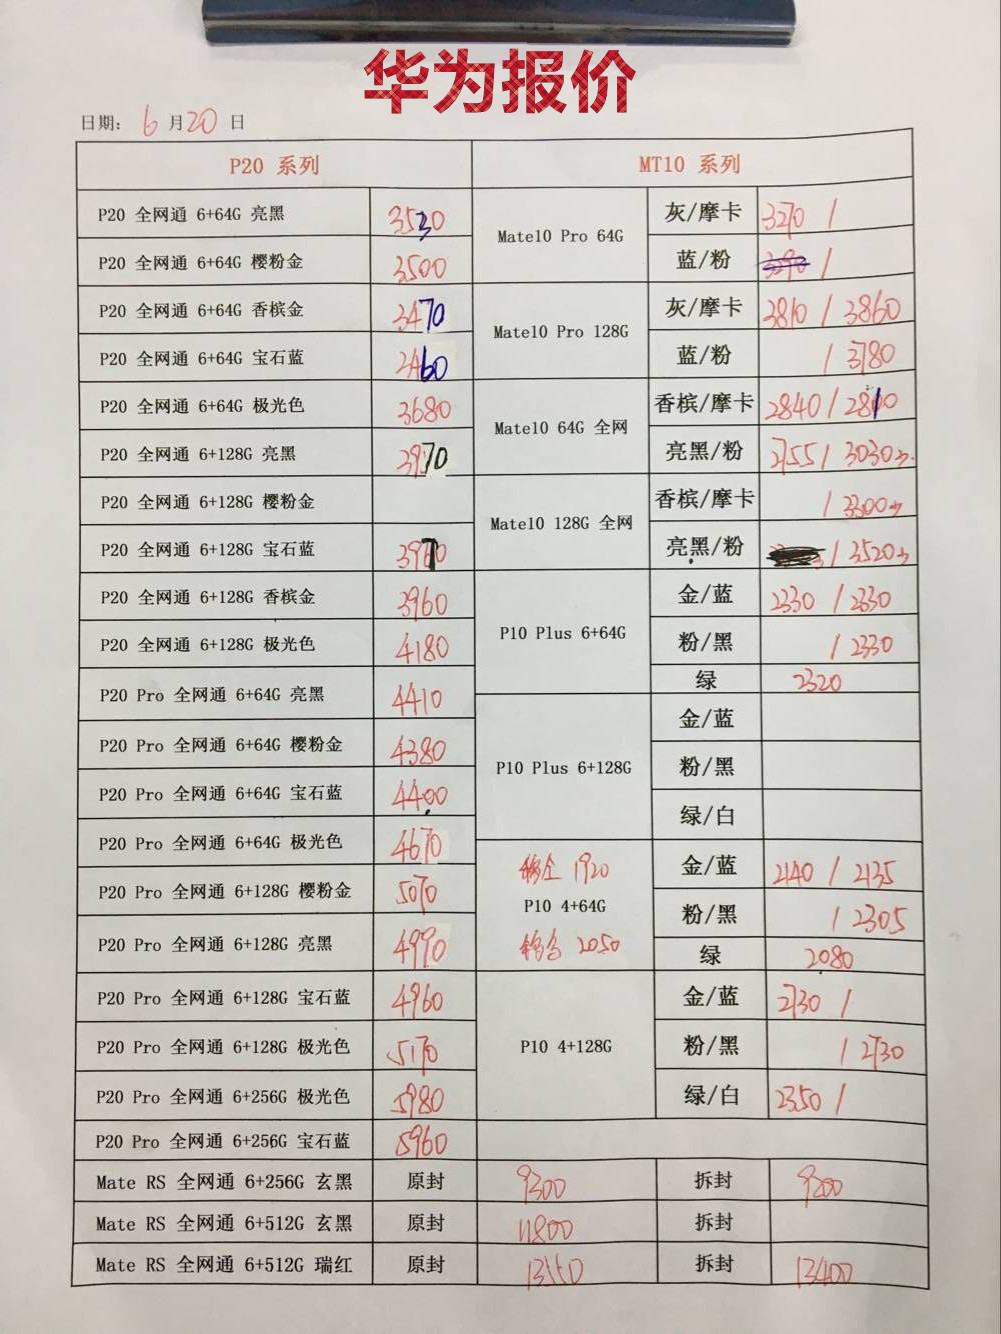 华为报价
日期: 6 月 20 日
P20 系列 MT10 系列
P20 全网通 6+64G 亮黑 3530
P20 全网通 6+64G 樱粉金 3500
P20 全网通 6+64G 香槟金 3470
P20 全网通 6+64G 宝石蓝
P20 全网通 6+64G 极光色 3680
P20 全网通 6+128G 亮黑 3970
P20 全网通 6+128G 樱粉金
P20 全网通 6+128G 宝石蓝
P20 全网通 6+128G 香槟金 3960
P20 全网通 6+128G 极光色 4180
P20 Pro 全网通 6+64G 亮黑 4410
P20 Pro 全网通 6+64G 樱粉金 4380
P20 Pro 全网通 6+64G 宝石蓝 4400
P20 Pro 全网通 6+64G 极光色 4670
P20 Pro 全网通 6+128G 樱粉金 5070
P20 Pro 全网通 6+128G 亮黑 4990
P20 Pro 全网通 6+128G 宝石蓝 4960
P20 Pro 全网通 6+128G 极光色 5170
P20 Pro 全网通 6+256G 极光色 5980
P20 Pro 全网通 6+256G 宝石蓝 5960
Mate10 Pro 64G
灰/摩卡 3270 /
蓝/粉 /
Mate10 Pro 128G
灰/摩卡 3810 / 3860
蓝/粉 / 3780
Mate10 64G 全网
香槟/摩卡 2840 /
亮黑/粉 2755 / 3030
Mate10 128G 全网
香槟/摩卡 / 3300
亮黑/粉 / 3520
P10 Plus 6+64G
金/蓝 2330 / 2330
粉/黑 / 2330
绿 2320
P10 Plus 6+128G
金/蓝
粉/黑
绿/白
1920
P10 4+64G
2050
金/蓝 2140 / 2135
粉/黑 / 2305
绿 2080
P10 4+128G
金/蓝 2730 /
粉/黑 / 2730
绿/白 2350 /
Mate RS 全网通 6+256G 玄黑 原封 9300 拆封 9200
Mate RS 全网通 6+512G 玄黑 原封 11800 拆封
Mate RS 全网通 6+512G 瑞红 原封 13550 拆封 13400